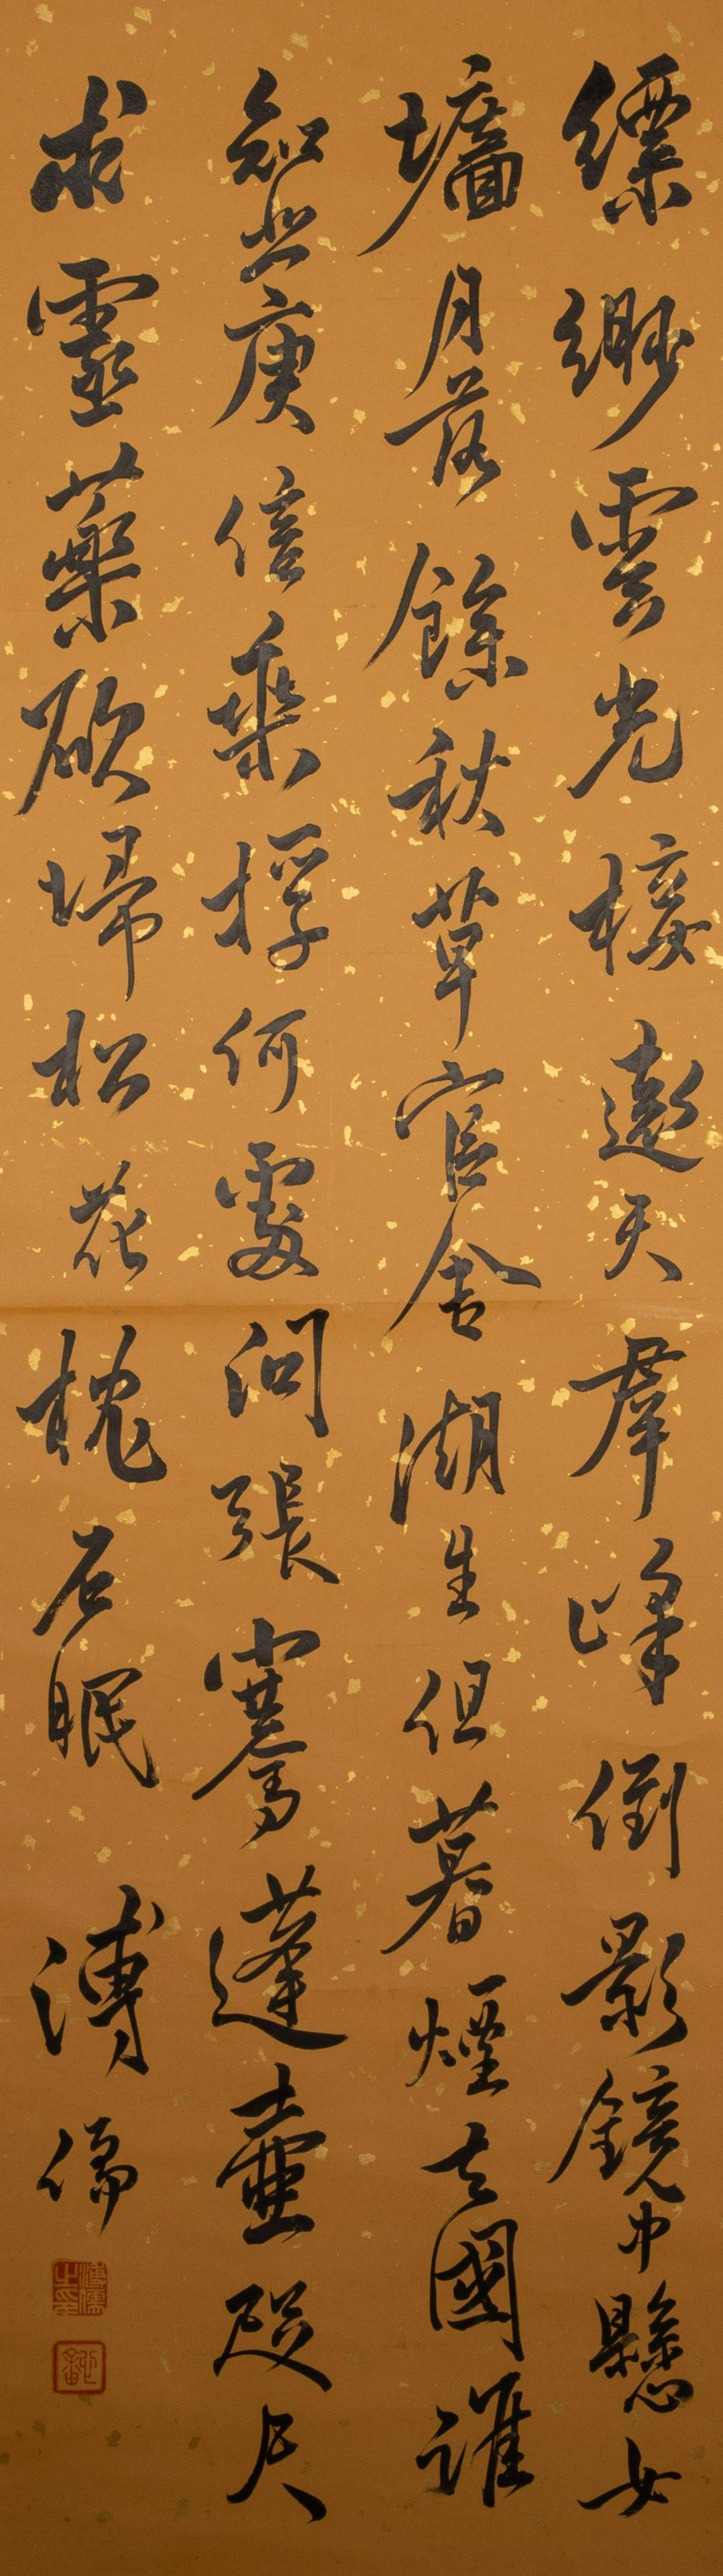 縹緲雲光接遠天群峰倒影鏡中懸女
墻月落餘秋草官舍湖生但暮煙去國誰
知悲庾信乘桴何處問張騫蓬壺咫尺
求靈藥欲掃松花枕石眠
溥儒
溥儒之印
心畬